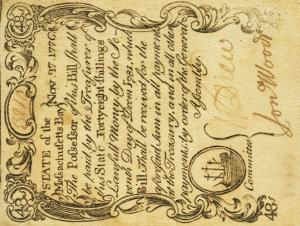 STATE of the
Massachusetts Bay. Nov. 17. 1776
The Possessor of this Bill shall
be paid by the Treasurer of
this State Fortyeight Shillings
Lawful Money by the Se-
venth Day of Decr. 1781, which
Bill shall be received for the
aforesd. sum in all payments
at the Treasury, and in all other
payments by order of the General
Assembly.
Committee
Jon Wood
48/
48/